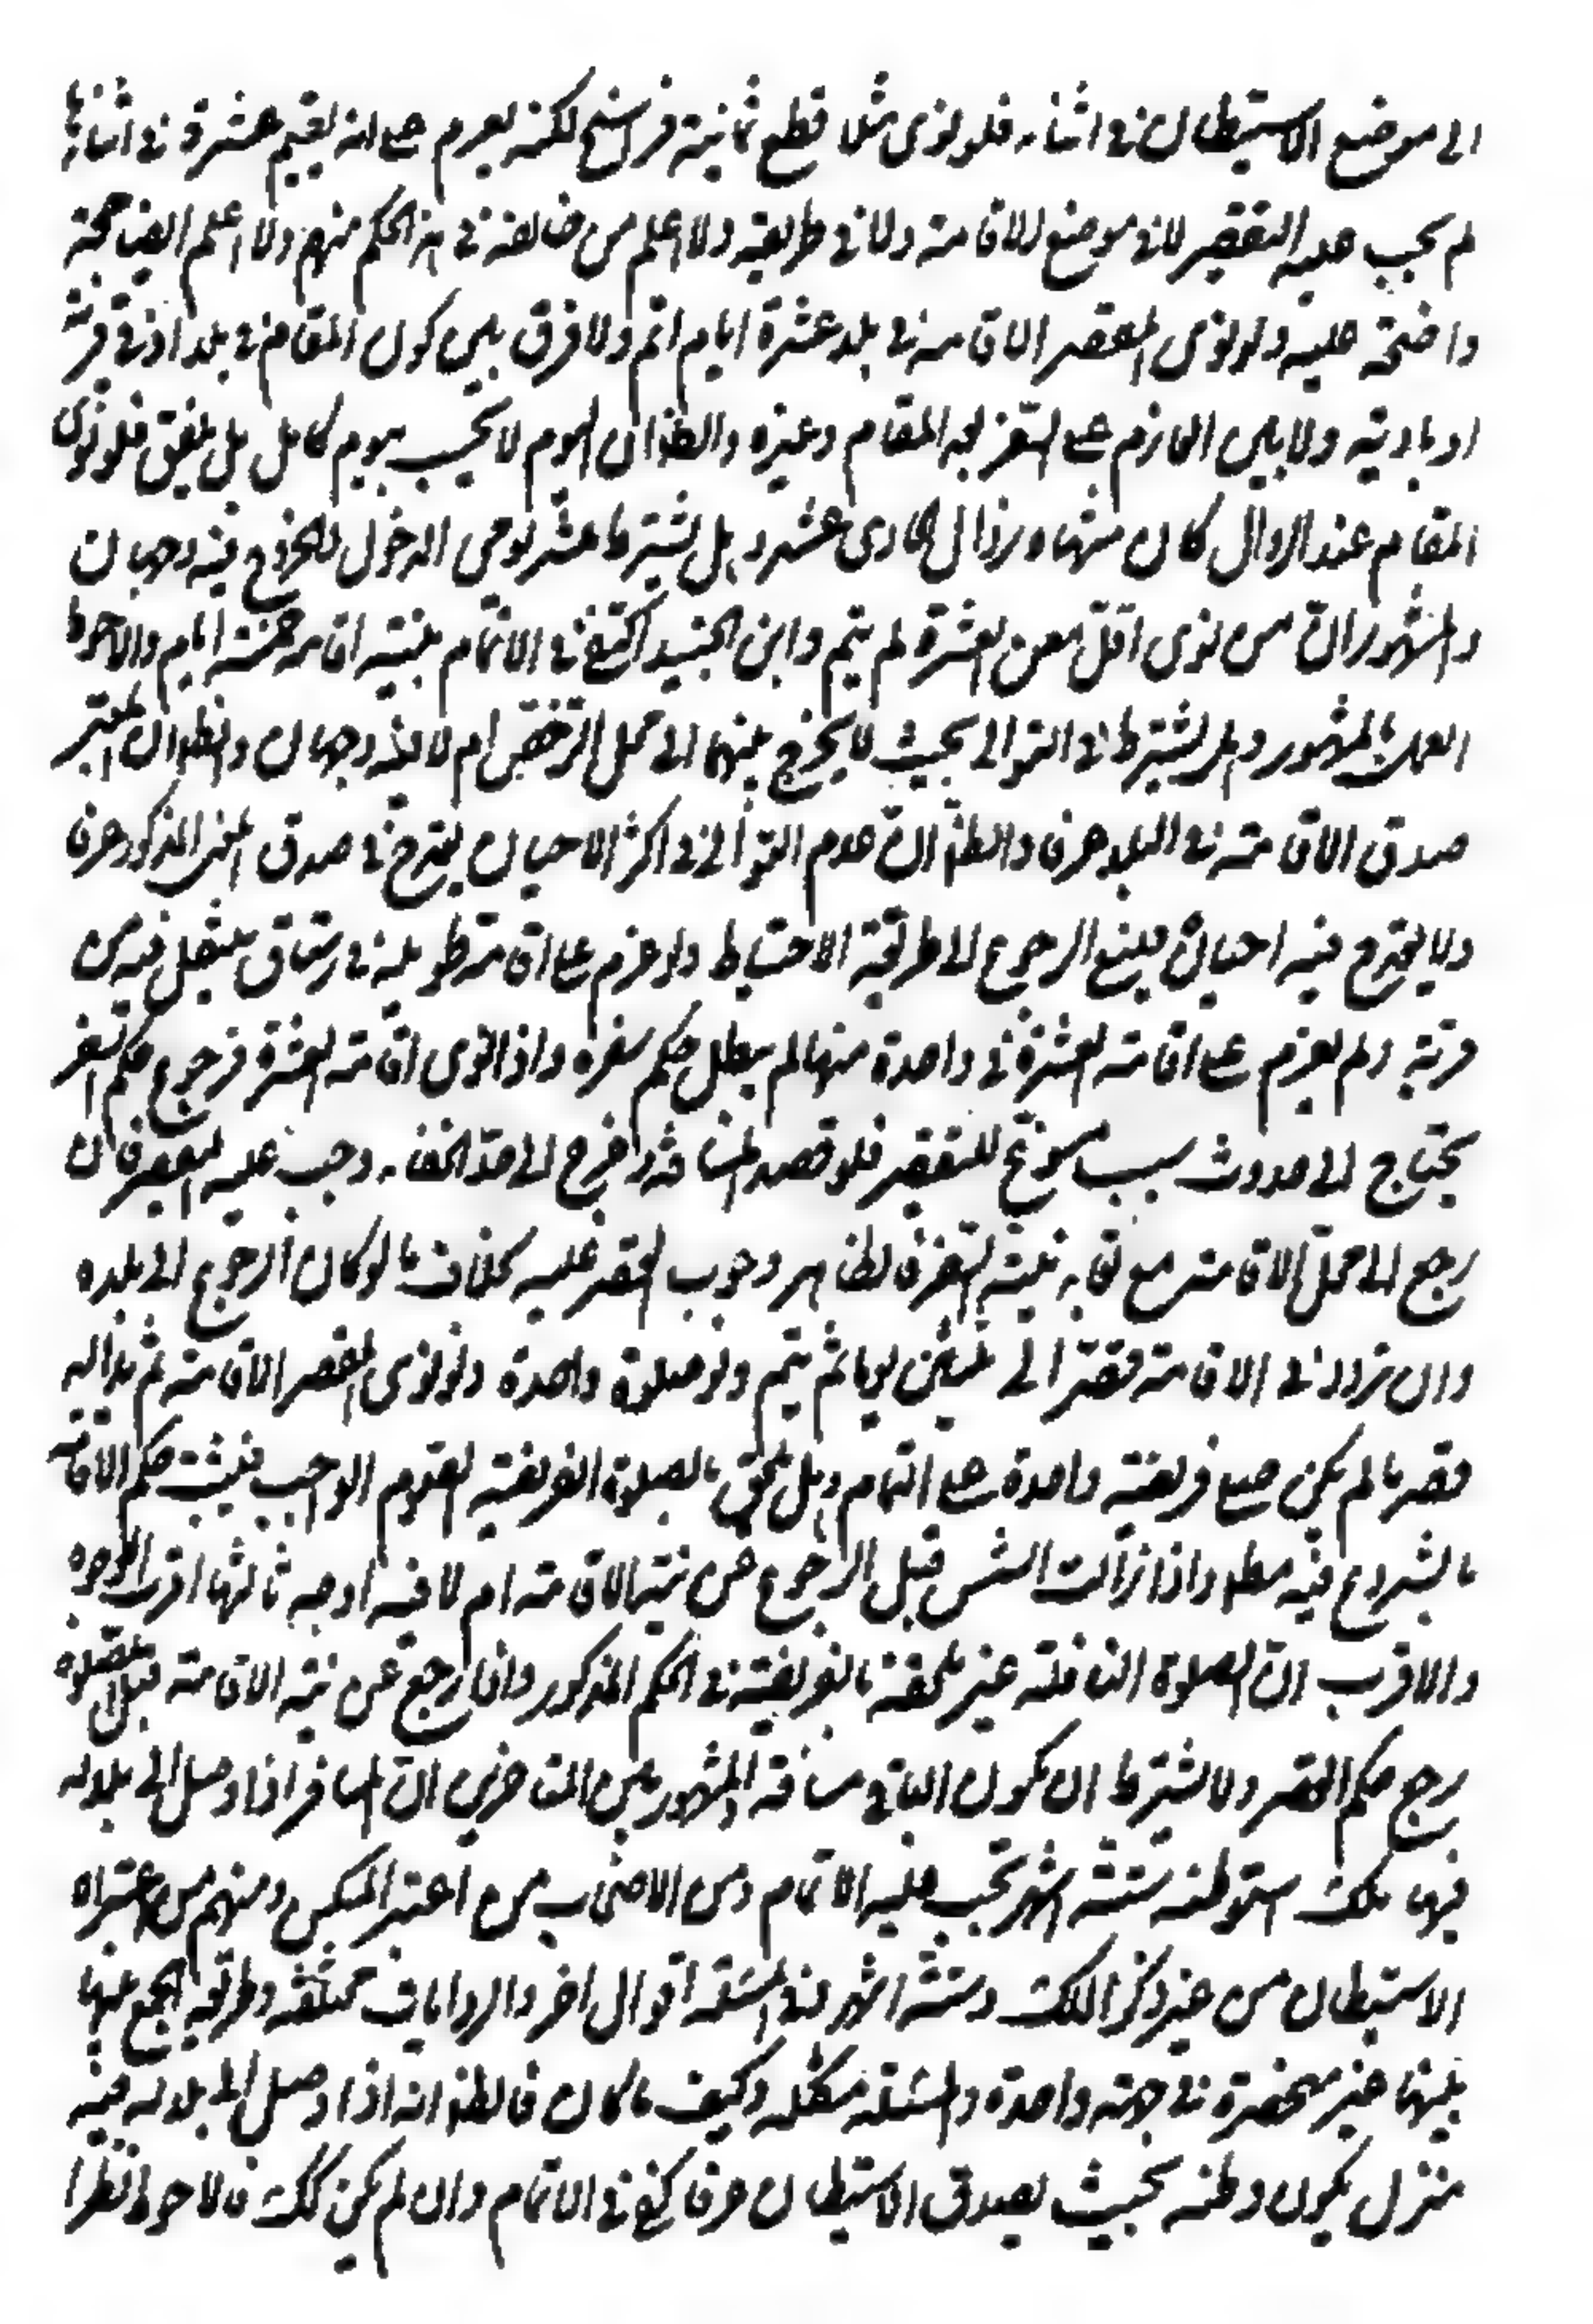 الى موضع الاستيطان في اثنائه فلو نوى مثلا قطع ثمانية فراسخ لكنه يعزم على انه يقيم عشرة في اثنائها
لم يجب عليه التقصير لا في موضع الاقامة ولا في طريقه ولا اعلم من خالف في هذا الحكم منهم ولا اعلم ايضا حجة
واضحة عليه ولو نوى المقصر الاقامة في بلد عشرة ايام اتم ولا فرق بين كون المقام في بلد او في قرية
او بادية ولا بين العازم على السفر بعد المقام وغيره والظ ان اليوم لا يحسب بيوم كامل بل يلفق فلو نوى
المقام عند الزوال كان منتهاه زوال الحادي عشر وهل يشترط عشر يومى الدخول والخروج فيه وجهان
والمشهور ان من نوى اقل من العشرة لم يتم وابن الجنيد اكتفى في الاتمام بنية اقامة خمسة ايام والاحوط
العمل بالمشهور وهل يشترط في التوالى بحيث لا يخرج بينها الى محل الترخص ام لا فيه وجهان والظ ان المعتبر
صدق الاقامة في البلد عرفا والظ ان عدم التوالى في اكثر الاحيان يقدح في صدق المعنى المذكور عرفا
ولا يقدح فيه احيانا فينبغ الرجوع الى طريقة الاحتياط ولو عزم على اقامة طويلة في رستاق ينتقل فيه من
قرية ولم يعزم على اقامة العشرة في واحدة منها لم يبطل حكم سفره واذا نوى اقامة العشرة فرجوع حكم السفر
يحتاج الى حدوث سبب مسوغ للتقصير فلو قصد المسافة وخرج الى حد الخفاء وجب عليه القصر فان
رجع الى محل الاقامة مع بقاء نية السفر فالظاهر وجوب القصر عليه بخلاف ما لو كان الرجوع الى بلده
وان تردد في الاقامة قصر الى ثلثين يوما ثم يتم ولو صلوة واحدة ولو نوى المقصر الاقامة ثم بدا له
قصر ما لم يكن صلى فريضة واحدة على التمام وهل يلحق بالصلوة الفريضة الصوم الواجب فيثبت حكم الاقامة
بالشروع فيه مطلقا واذا زالت الشمس قبل الرجوع عن نية الاقامة ام لا فيه اوجه ثالثها اقرب الوجوه
والاقرب ان الصلوة النافلة غير ملحقة بالفريضة في الحكم المذكور واذا رجع عن نية الاقامة قبل الصلوة
رجع حكم القصر ولا يشترط ان يكون الباقي مسافة والمشهور بين المتاخرين ان المسافر اذا وصل الى بلد له
فيها ملك استوطنه ستة اشهر يجب عليه الاتمام ومن الاصحاب من اعتبر المسكن ومنهم من اعتبر
الاستيطان من غير ذكر الملك وستة اشهر وفي المسئلة اقوال اخر والروايات مختلفة وطريق الجمع بينها
بينها غير منحصرة في جهة واحدة والمسئلة مشكلة وكيف ما كان فالظ انه اذا وصل الى بلد له فيه
منزل يكون وطنه بحيث يصدق الاستيطان عرفا كفى في الاتمام وان لم يكن كك فالاحوط نظرا